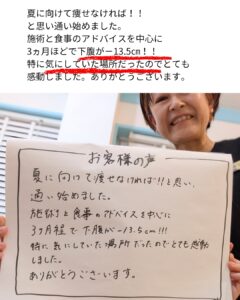 夏に向けて痩せなければ！！
と思い通い始めました。
施術と食事のアドバイスを中心に
3ヵ月ほどで下腹が－13.5cm！！
特に気にしていた場所だったのでとても
感動しました。ありがとうございます。
お客様の声
夏に向けて痩せなければ!!と思い、
通い始めました。
施術と食事のアドバイスを中心に
3ヶ月程で下腹が-13.5cm!!!
特に気にしていた場所だったのでとても感動
しました。
ありがとうございます。